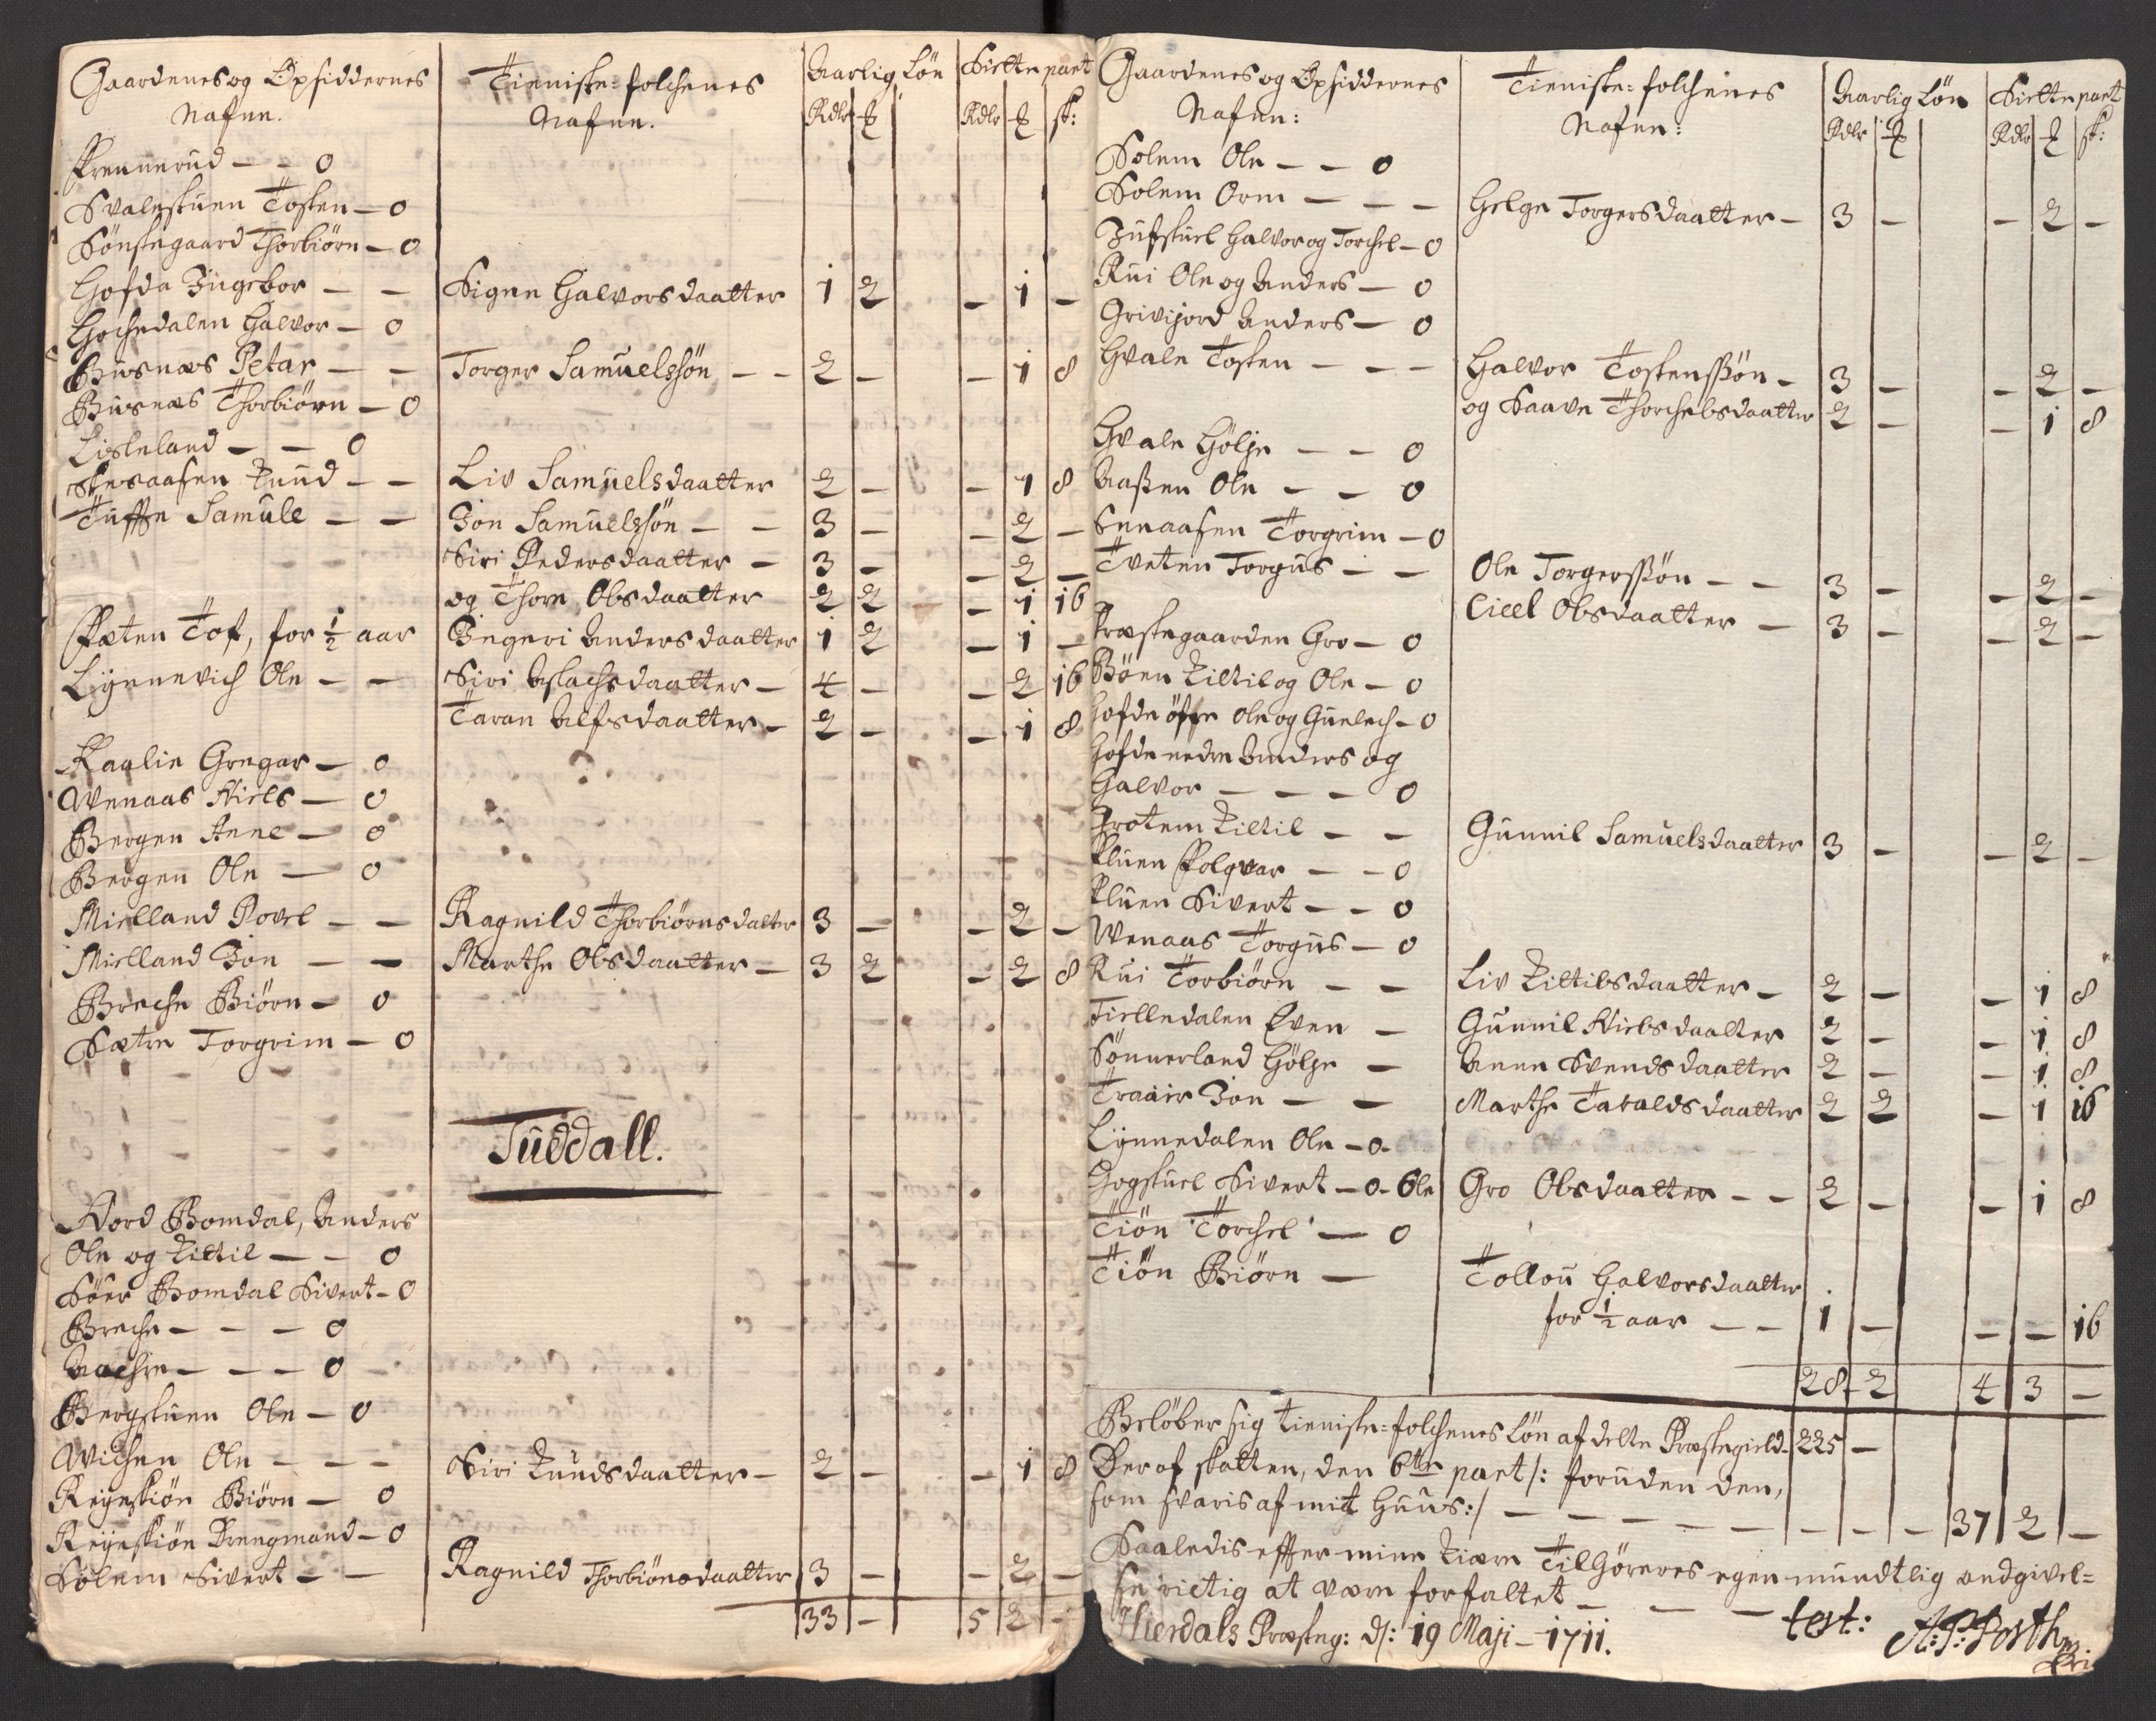 Gaardenes og Opsiddernes Nafne.
Tieniste-folchenes Nafne.
Aarlig Løn
Siette part
Rdlr
sk:
Prennerud — — 0
Svalestuen Tosten — 0
Sønstegaard Thorbiørn — 0
Hofda Ingebor — — Signe Halvorsdaatter 1 2 — 1 —
Hochedalen Halvor — 0
Busnæs Petar — — Torger Samuelssøn — — 2 — — 1 8
Busnæs Thorbiørn — 0
Lisleland — — 0
Knud — — Liv Samuelsdaatter 2 — — 1 8
Tuffte Samule — — Jon Samuelssøn — — 3 — — 2 —
Siri Pedersdaatter — 3 — — 2 —
og Thore Olsdaatter 2 2 — 1 16
Tof, for ½ aar Ingeri Andersdaatter 1 2 — 1 —
Lynnevich Ole — — Siri Aslachsdaatter — 4 — — 2 16
Taran Alfsdaatter — 2 — — 1 8
Raalie Gregar — 0
Wenaas Niels — 0
Bergen Anne — 0
Bergen Ole — 0
Mielland Povel — — Ragnild Thorbiørnsdatter 3 — — 2 —
Mielland Jon — — Marthe Olsdaatter — 3 2 — 2 8
Breche Biørn — 0
Sætre Torgrim — 0
Tuddall.
Nord Bomdal, Anders
Ole og Kittil — — 0
Søer Bomdal Sivert — 0
Breche — — — 0
Aachre — — — 0
Bergstuen Ole — 0
Wichen Ole — — — Siri Knudsdaatter — 2 — — 1 8
Reyeskiøn Biørn — 0
Reyeskiøn Drengmand — 0
Solem Sivert — — Ragnild Thorbiørnsdaatter 3 — — 2 —
33 — 5 2 —
Gaardenes og Opsiddernes Nafne:
Tieniste-folchenes Nafne:
Aarlig Løn
Siette part
Rdlr
sk:
Solem Ole — — 0
Solem Orm — — — Helge Torgersdaatter — 3 — — 2 —
Halvor og Torchel — 0
Rui Ole og Anders — 0
Grivijord Anders — 0
Hvale Tosten — — — Halvor Tostenssøn — 3 — — 2 —
og Saave Thorchelsdaatter 2 — — 1 8
Hvale Hølje — — 0
Aasen Ole — — 0
Torgrim — 0
Tveten Torgus — — Ole Torgerssøn — — 3 — — 2 —
Cicel Olsdaatter — 3 — — 2 —
Præstegaarden Gro — 0
Bøen Kittil og Ole — 0
Hofde øfre Ole og Gunlech — 0
Hofde nedre Anders og
Halvor — — — 0
Grotem Kittil — — Gunnil Samuelsdaatter 3 — — 2 —
Kluen Folqvar — — 0
Kluen Sivert — — 0
Wenaas Torgus — 0
Rui Torbiørn — — Liv Kittilsdaatter — 2 — — 1 8
Tielledalen Even — Gunnil Nielsdaatter 2 — — 1 8
Sønnerland Hølje — Anne Svendsdaatter 2 — — 1 8
Traaer Jon — — Marthe Tavaldsdaatter 2 2 — 1 16
Lynnedalen Ole — 0 —
Hogstuel Sivert — 0 — Ole Gro Olsdaatter — — 2 — — 1 8
Tiøn Torchel — 0
Tiøn Biørn — Tollou Halvorsdaatter
for ½ aar — — 1 — — — 16
28 2 4 3 —
Beløber sig tieniste-folchenes Løn af dette Præstegield — 225 —
Deraf skatten, den 6te part /: foruden den,
som svaris af mit Huus :/ — — — — — — — — 37 2 —
Saaledis effter mine kiære Tilhøreres egen mundtlig andgivel-
se rictig at være forfattet — — — test: A:P: Posth
Hierdals Præsteg: d: 19 Maji — 1711.